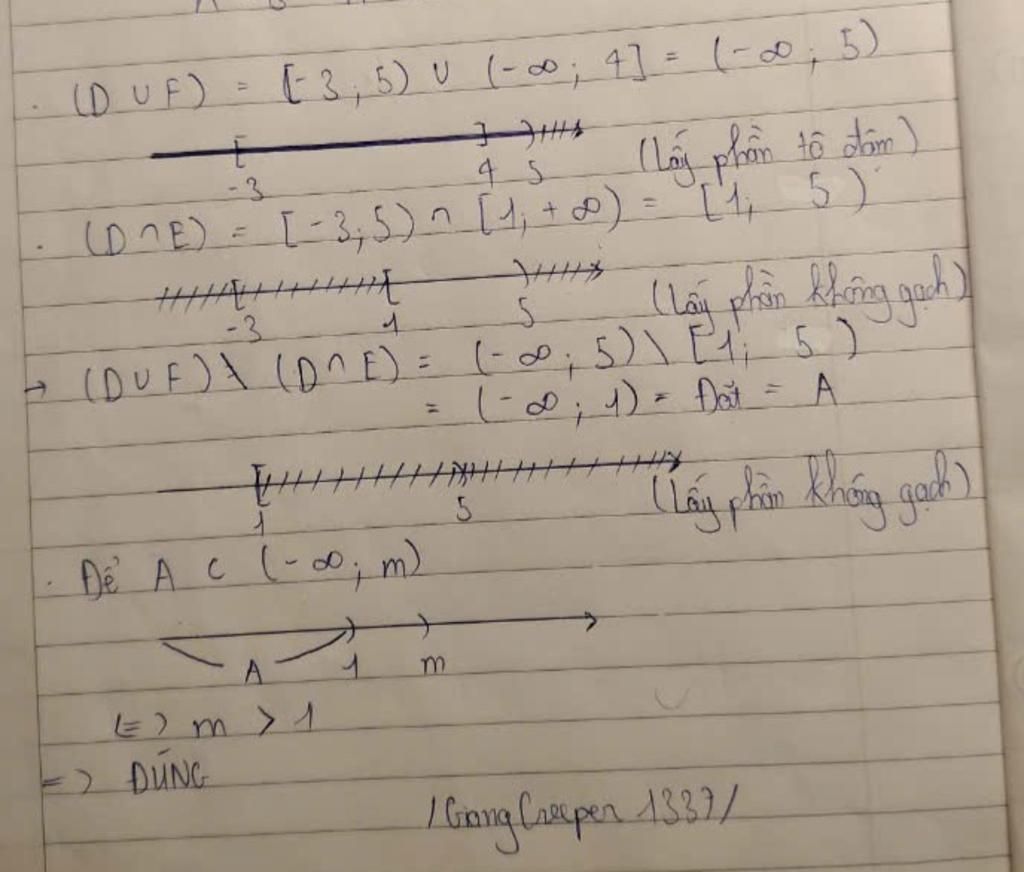 . (D ∪ F) = [-3; 5) ∪ (-∞; 4] = (-∞; 5)
-3 4 5 (lấy phần tô đậm)
. (D ∩ E) = [-3; 5) ∩ [1; +∞) = [1; 5)
-3 1 5 (lấy phần không gạch)
→ (D ∪ F) \ (D ∩ E) = (-∞; 5) \ [1; 5)
= (-∞; 1) = Đặt = A
1 5 (lấy phần không gạch)
. Để A ⊂ (-∞; m)
A 1 m
(=) m > 1
=) ĐÚNG
/GiangCreeper 1337/